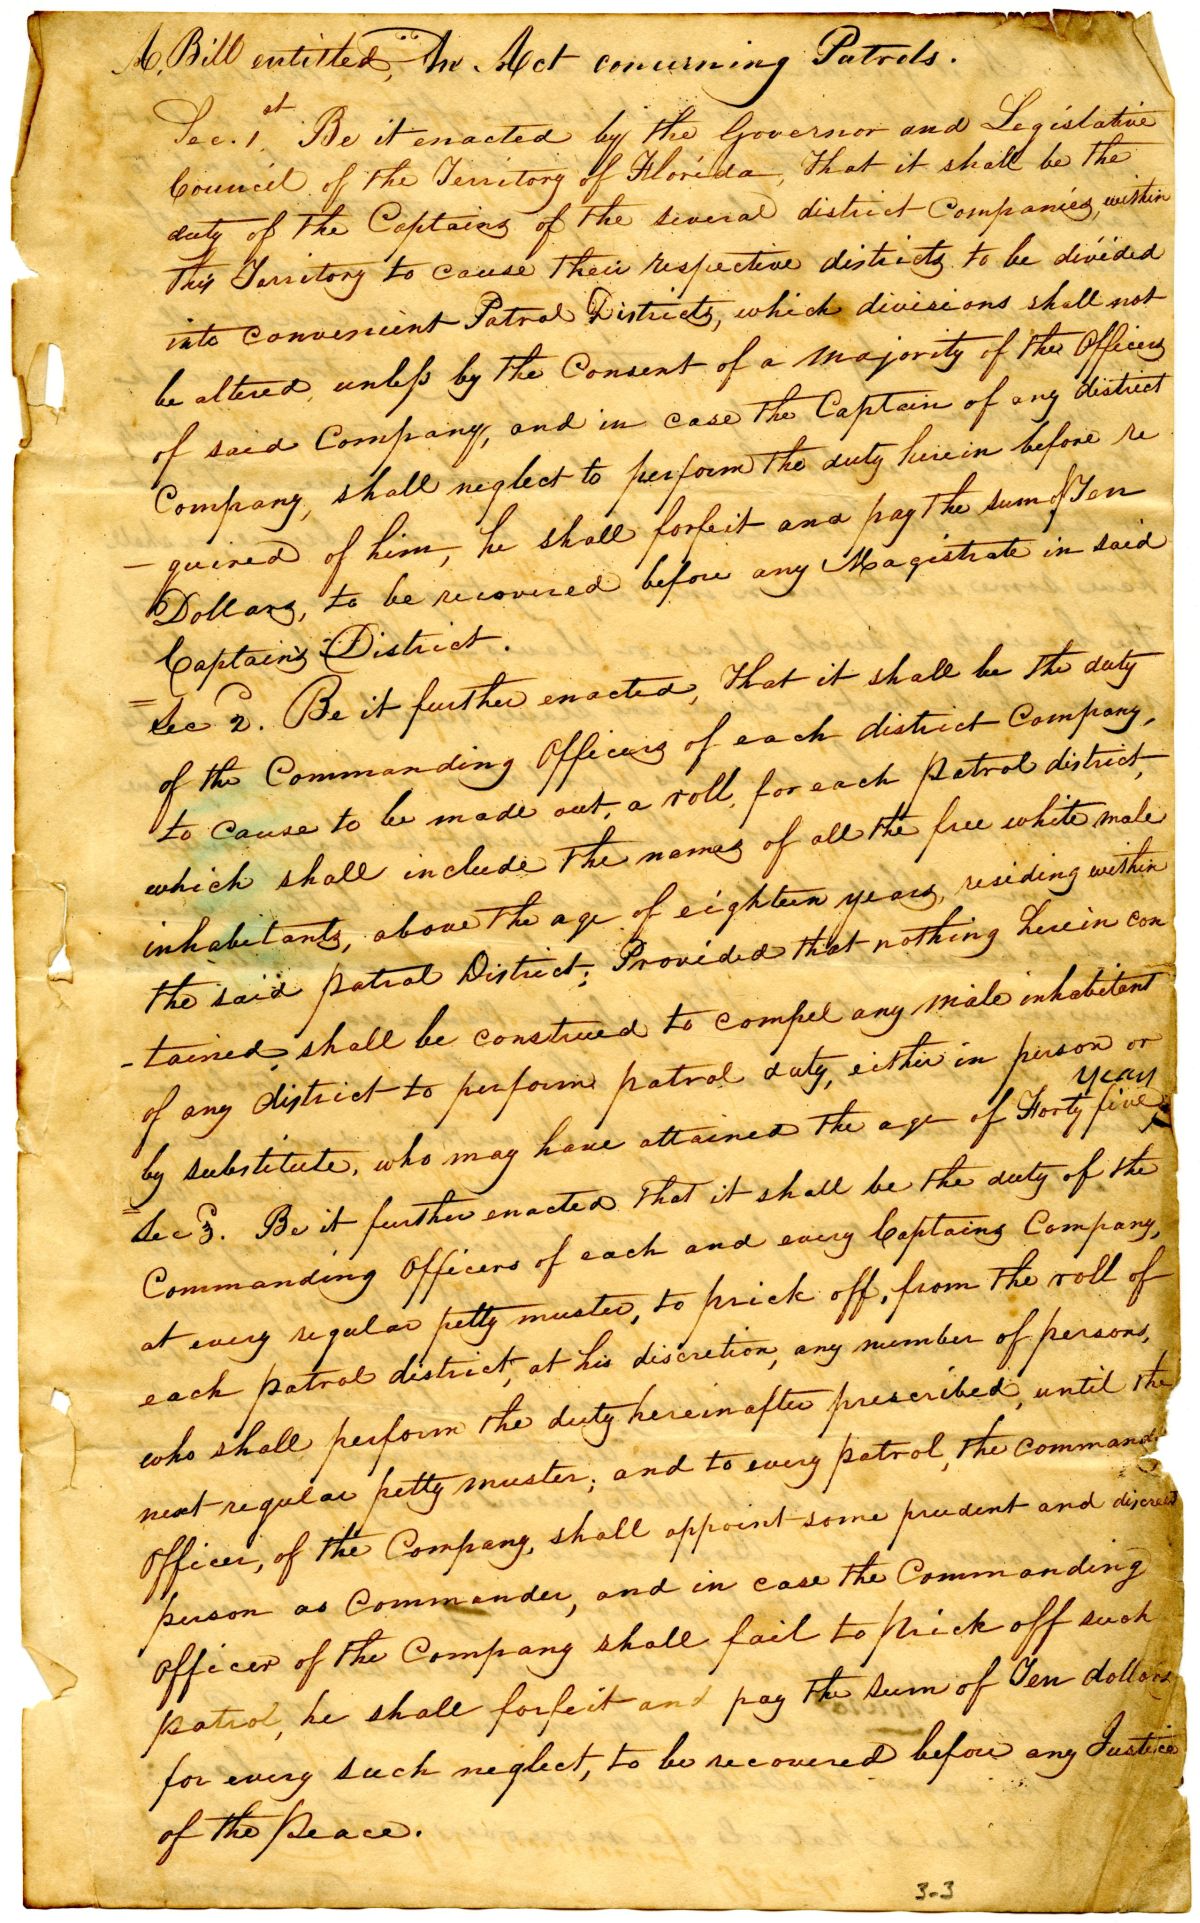 A Bill entitled, "An Act concerning Patrols.
Sec. 1st. Be it enacted by the Governor and Legislative
Council of the Territory of Florida, That it shall be the
duty of the Captains of the several district Companies, within
this Territory to cause their respective districts to be divided
into convenient Patrol Districts, which divisions shall not
be altered, unless by the Consent of a majority of the Officers
of said Company, and in case the Captain of any district
Company, shall neglect to perform the duty herein before re
- quired of him, he shall forfeit and pay the sum of Ten
Dollars, to be recovered before any Magistrate in said
Captain's District.
Sec 2. Be it further enacted, That it shall be the duty
of the Commanding Officers of each district Company,
to cause to be made out, a roll, for each patrol district,
which shall include the names of all the free white male
inhabitants, above the age of eighteen years, residing within
the said patrol District; Provided that nothing herein con
- tained, shall be construed to compel any male inhabitant
of any district to perform patrol duty, either in person or
by substitute, who may have attained the age of Forty five years
Sec 3. Be it further enacted That it shall be the duty of the
Commanding Officers of each and every Captains Company,
at every regular petty muster, to prick off, from the roll of
each patrol district, at his discretion, any number of persons,
who shall perform the duty hereinafter prescribed, until the
next regular petty muster; and to every patrol, the Command
Officer, of the Company, shall appoint some prudent and discreet
person as Commander, and in case the Commanding
Officer of the Company shall fail to prick off such
patrol, he shall forfeit and pay the sum of Ten dollars
for every such neglect, to be recovered before any Justice
of the Peace.
3-3